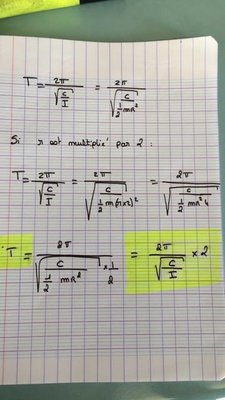 T = 2π / √(C/I) = 2π / √(C / ½ mR²)
Si r est multiplié par 2 :
T = 2π / √(C/I) = 2π / √(C / ½ m(r×2)²) = 2π / √(C / ½ mR² 4)
T = 2π / √(C / ½ mR²) × ½ = 2π / √(C/I) × 2